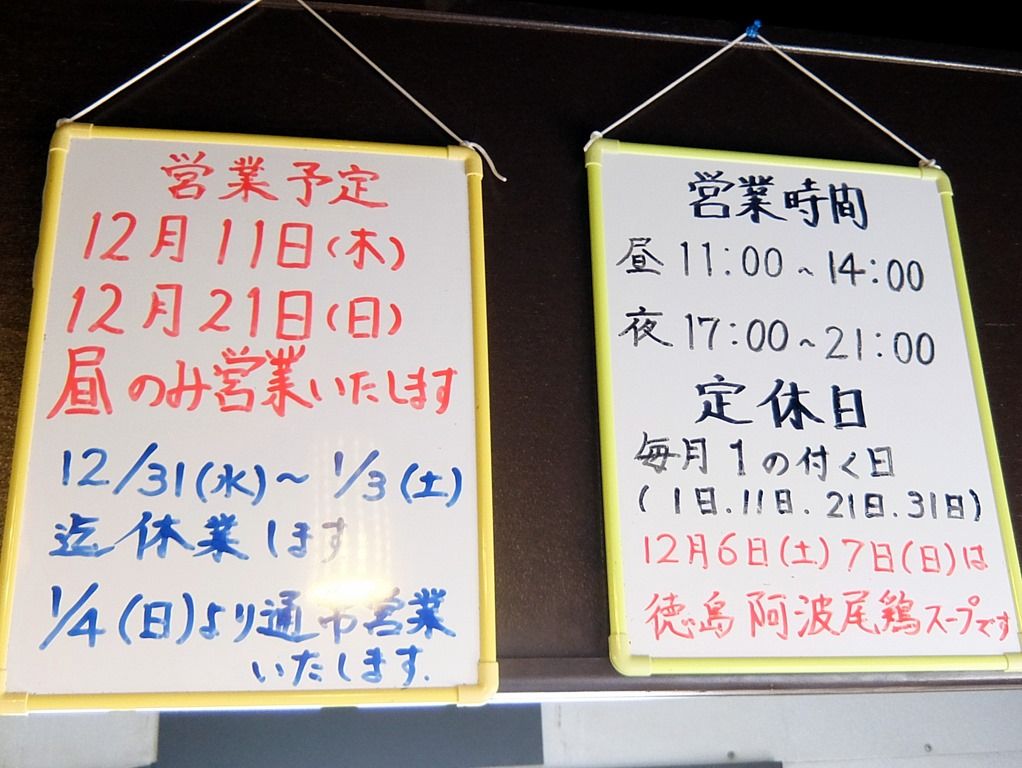 営業予定
12月11日(木)
12月21日(日)
昼のみ営業いたします
12/31(水)～1/3(土)
迄休業します
1/4(日)より通常営業
いたします.
営業時間
昼11:00～14:00
夜17:00～21:00
定休日
毎月1の付く日
(1日.11日.21日.31日)
12月6日(土)7日(日)は
徳島阿波尾鶏スープです